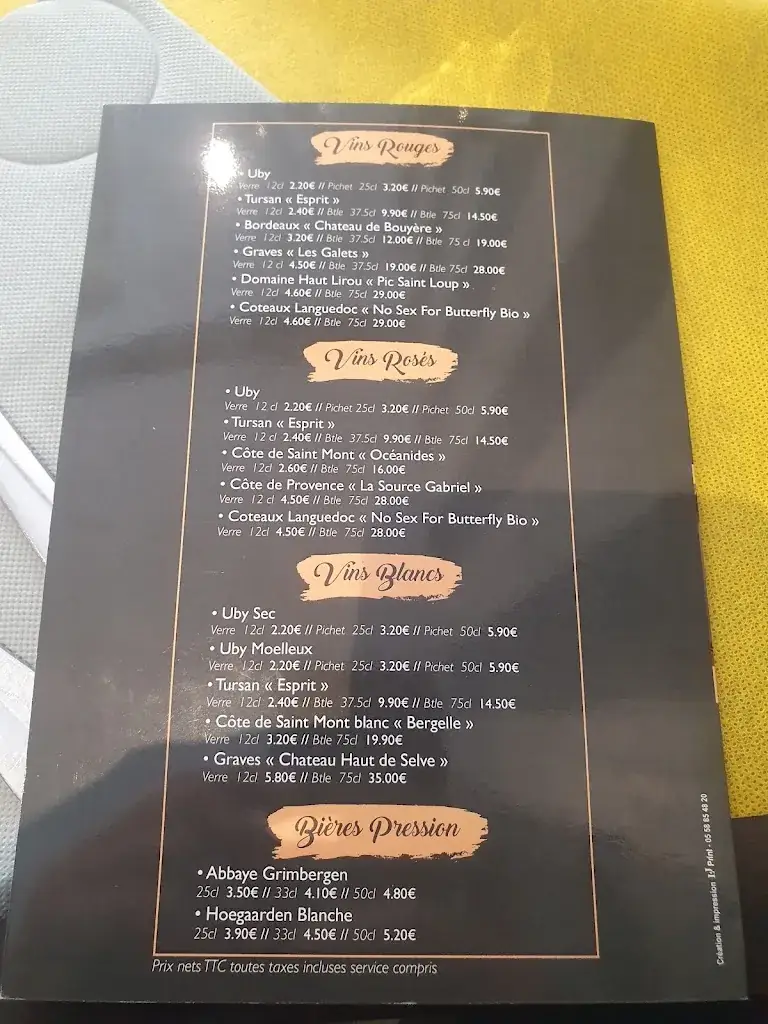 Vins Rouges
• Uby
Verre 12cl 2.20€ // Pichet 25cl 3.20€ // Pichet 50cl 5.90€
• Tursan « Esprit »
Verre 12cl 2.40€ // Btle 37.5cl 9.90€ // Btle 75cl 14.50€
• Bordeaux « Chateau de Bouyère »
Verre 12cl 3.20€ // Btle 37.5cl 12.00€ // Btle 75 cl 19.00€
• Graves « Les Galets »
Verre 12 cl 4.50€ // Btle 37.5cl 19.00€ // Btle 75cl 28.00€
• Domaine Haut Lirou « Pic Saint Loup »
Verre 12cl 4.60€ // Btle 75cl 29.00€
• Coteaux Languedoc « No Sex For Butterfly Bio »
Verre 12cl 4.60€ // Btle 75cl 29.00€
Vins Rosés
• Uby
Verre 12 cl 2.20€ // Pichet 25cl 3.20€ // Pichet 50cl 5.90€
• Tursan « Esprit »
Verre 12 cl 2.40€ // Btle 37.5cl 9.90€ // Btle 75cl 14.50€
• Côte de Saint Mont « Océanides »
Verre 12cl 2.60€ // Btle 75cl 16.00€
• Côte de Provence « La Source Gabriel »
Verre 12 cl 4.50€ // Btle 75cl 28.00€
• Coteaux Languedoc « No Sex For Butterfly Bio »
Verre 12cl 4.50€ // Btle 75cl 28.00€
Vins Blancs
• Uby Sec
Verre 12cl 2.20€ // Pichet 25cl 3.20€ // Pichet 50cl 5.90€
• Uby Moelleux
Verre 12cl 2.20€ // Pichet 25cl 3.20€ // Pichet 50cl 5.90€
• Tursan « Esprit »
Verre 12cl 2.40€ // Btle 37.5cl 9.90€ // Btle 75cl 14.50€
• Côte de Saint Mont blanc « Bergelle »
Verre 12cl 3.20€ // Btle 75cl 19.90€
• Graves « Chateau Haut de Selve »
Verre 12cl 5.80€ // Btle 75cl 35.00€
Bières Pression
• Abbaye Grimbergen
25cl 3.50€ // 33cl 4.10€ // 50cl 4.80€
• Hoegaarden Blanche
25cl 3.90€ // 33cl 4.50€ // 50cl 5.20€
Prix nets TTC toutes taxes incluses service compris
Création & impression Print - 05 58 85 48 20